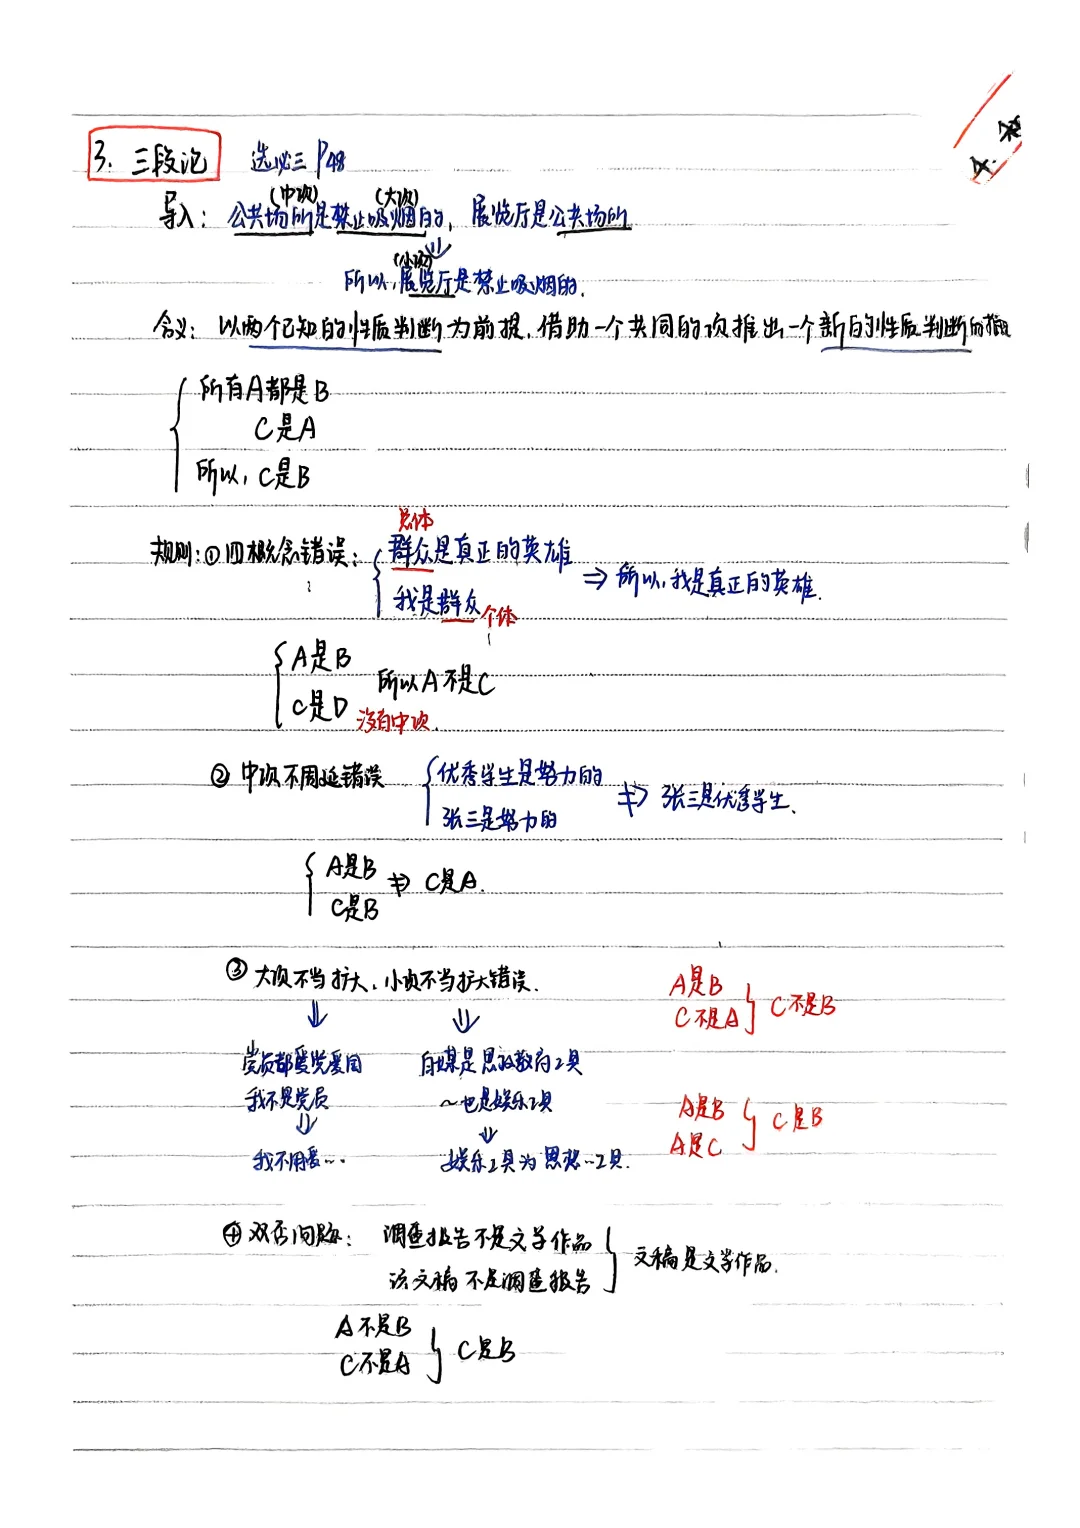 3. 三段论 选必三 P48
(中项) (大项)
导入: 公共场所是禁止吸烟的, 展览厅是公共场所
(小项)
所以, 展览厅是禁止吸烟的.
含义: 以两个已知的性质判断为前提, 借助一个共同的项推出一个新的性质判断的推理
所有A都是B
C是A
所以, C是B
总体
规则: ① 四概念错误: 群众是真正的英雄
⇒ 所以, 我是真正的英雄.
我是群众 个体
A是B
所以A不是C
C是D 没有中项.
② 中项不周延错误 优秀学生是努力的
张三是努力的 ⇏ 张三是优秀学生.
A是B
⇏ C是A.
C是B
③ 大项不当扩大、小项不当扩大错误.
A是B
C不是A } C不是B
党员都爱党爱国 自媒是思政教育工具
我不是党员 ~也是娱乐工具
A是B
A是C } C是B
我不用爱… 娱乐工具为思想…工具.
④ 双否问题: 调查报告不是文学作品
该文稿不是调查报告 } 文稿是文学作品.
A不是B
C不是A } C是B